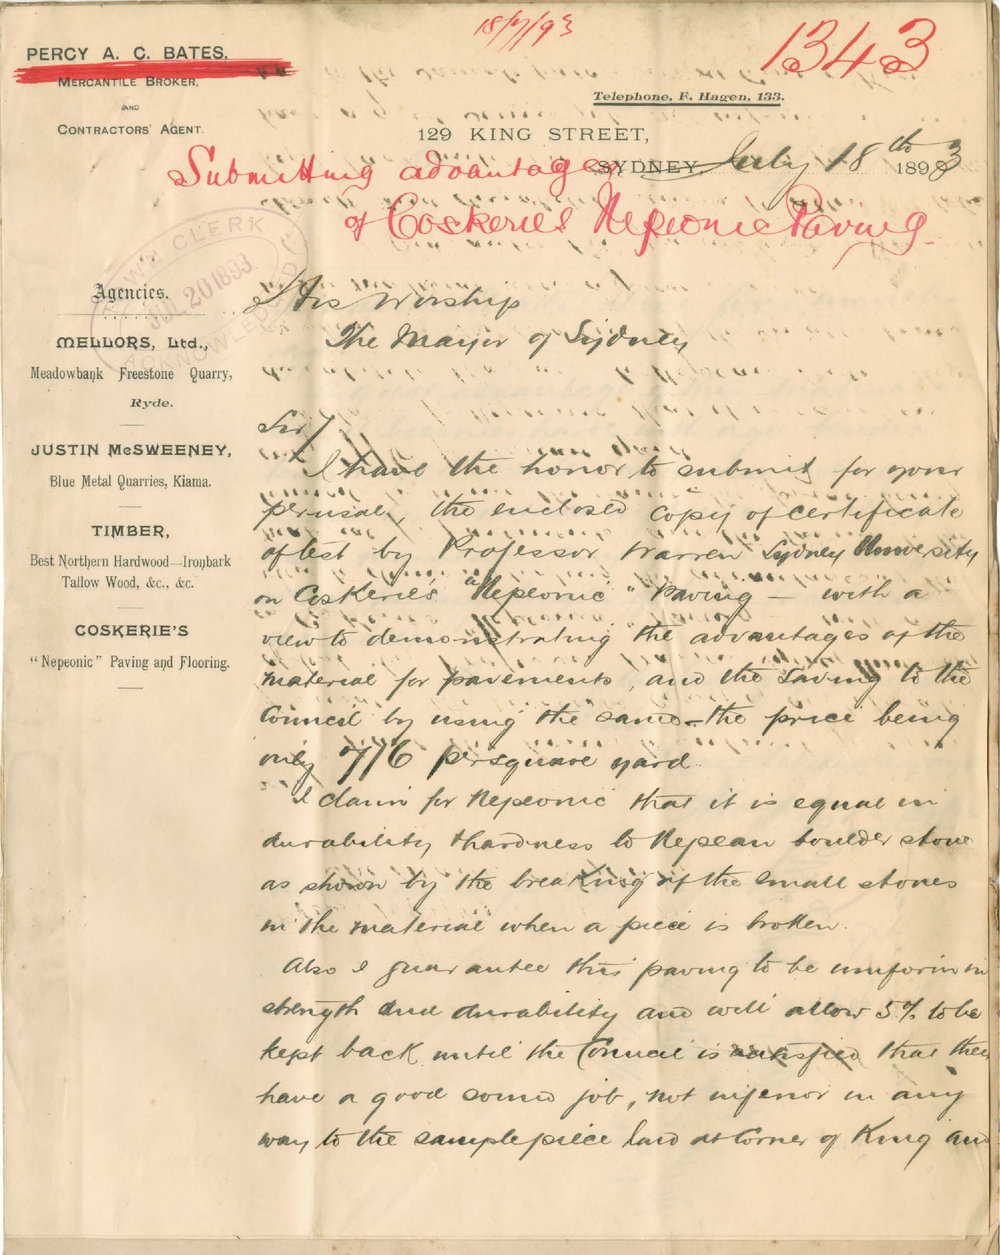 18/7/93
1343
PERCY A. C. BATES,
MERCANTILE BROKER,
AND
CONTRACTORS' AGENT.
Telephone, F. Hagen, 133.
129 KING STREET,
SYDNEY, July 18th 1893
Submitting advantages
of Coskeries Nepeonic Paving
TOWN CLERK
JUL 20 1893
ACKNOWLEDGED
His Worship
The Mayor of Sydney
Agencies.
MELLORS, Ltd.,
Meadowbank Freestone Quarry,
Ryde.
JUSTIN McSWEENEY,
Blue Metal Quarries, Kiama.
TIMBER,
Best Northern Hardwood—Ironbark
Tallow Wood, &c., &c.
COSKERIE'S
"Nepeonic" Paving and Flooring.
Sir/
I have the honor to submit for your
perusal, the enclosed copy of certificate
of test by Professor Warren Sydney University
on Coskerie's "Nepeonic" Paving — with a
view to demonstrating the advantages of the
material for pavements, and the saving to the
Council by using the same - the price being
only 7/6 per square yard
I claim for Nepeonic that it is equal in
durability & hardness to Nepean boulder stone
as shown by the breaking of the small stones
in the material when a piece is broken.
Also I guarantee this paving to be uniform in
strength and durability and will allow 5% to be
kept back until the Council is satisfied that they
have a good sound job, not inferior in any
way to the sample piece laid at Corner of King and